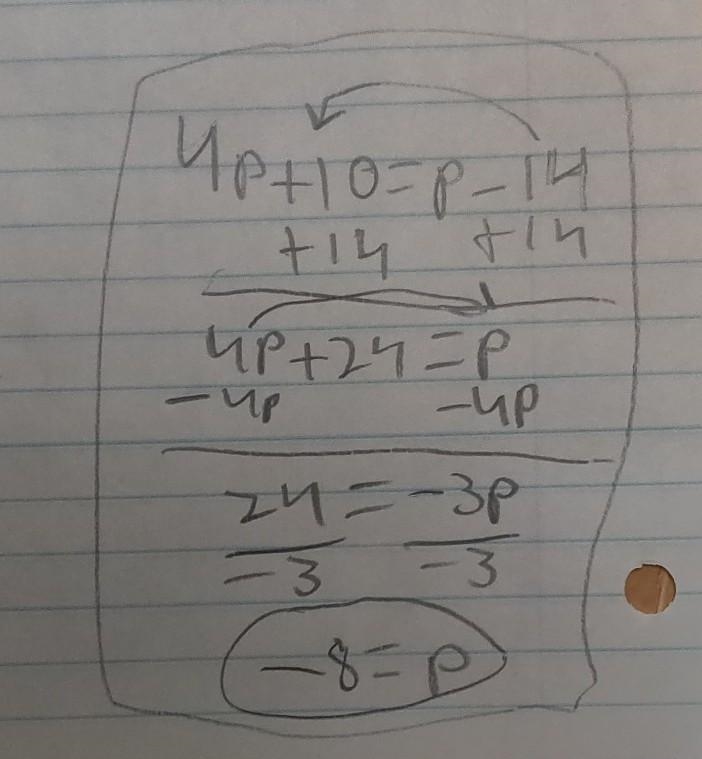 4p+10=p-14
+14 +14
4p+24=p
-4p -4p
24=-3p
-3 -3
-8=p